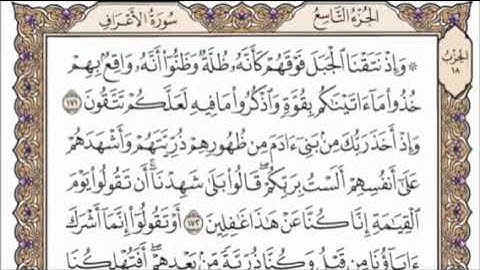 الجزء التاسع
سورة الأعراف
الحزب
١٨
۞ وَإِذْ نَتَقْنَا ٱلْجَبَلَ فَوْقَهُمْ كَأَنَّهُۥ ظُلَّةٌ وَظَنُّوٓا۟ أَنَّهُۥ وَاقِعٌۢ بِهِمْ
خُذُوا۟ مَآ ءَاتَيْنَٰكُم بِقُوَّةٍ وَٱذْكُرُوا۟ مَا فِيهِ لَعَلَّكُمْ تَتَّقُونَ ١٧١
وَإِذْ أَخَذَ رَبُّكَ مِنۢ بَنِىٓ ءَادَمَ مِن ظُهُورِهِمْ ذُرِّيَّتَهُمْ وَأَشْهَدَهُمْ
عَلَىٰٓ أَنفُسِهِمْ أَلَسْتُ بِرَبِّكُمْ ۖ قَالُوا۟ بَلَىٰ شَهِدْنَآ ۛ أَن تَقُولُوا۟ يَوْمَ
ٱلْقِيَٰمَةِ إِنَّا كُنَّا عَنْ هَٰذَا غَٰفِلِينَ ١٧٢ أَوْ تَقُولُوٓا۟ إِنَّمَآ أَشْرَكَ
ءَابَآؤُنَا مِن قَبْلُ وَكُنَّا ذُرِّيَّةً مِّنۢ بَعْدِهِمْ ۖ أَفَتُهْلِكُنَا